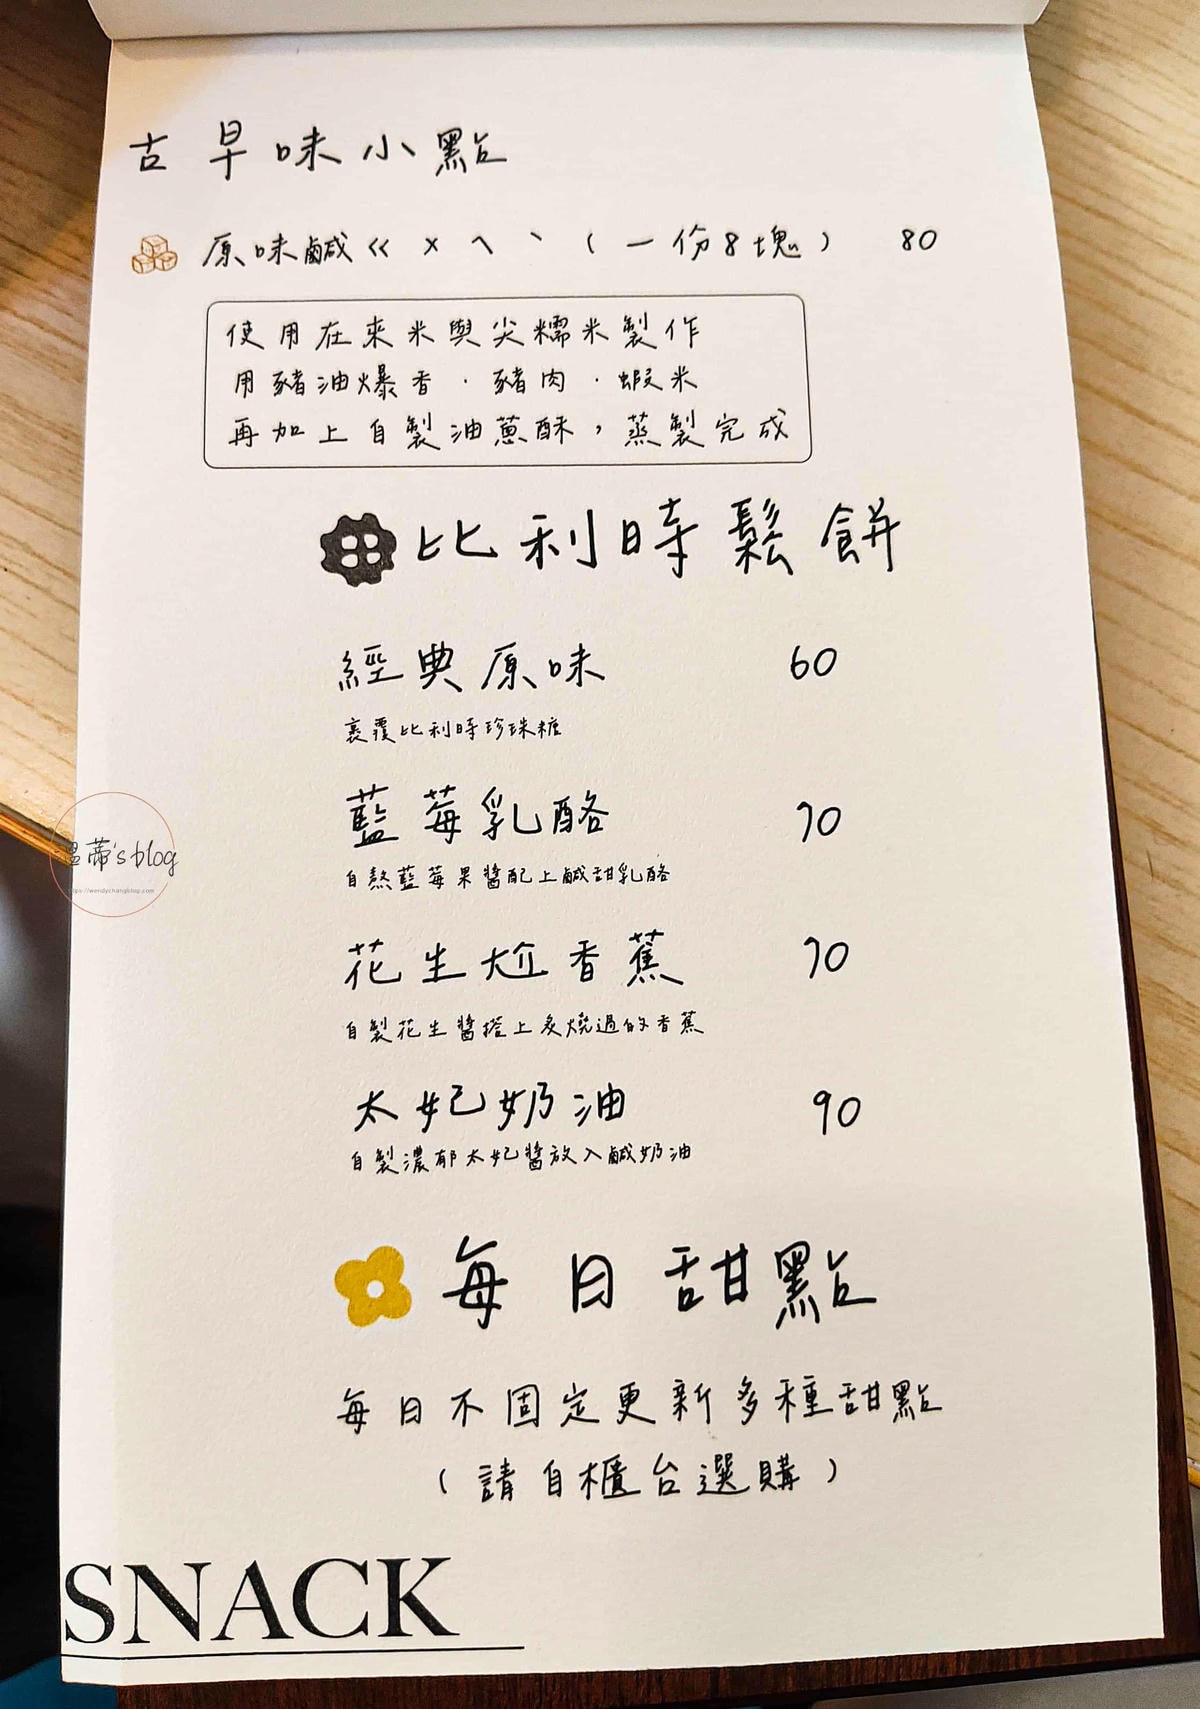 古早味小點
原味鹹ㄍㄨㄟˋ（一份8塊） 80
使用在來米與尖糯米製作
用豬油爆香．豬肉．蝦米
再加上自製油蔥酥，蒸製完成
比利時鬆餅
經典原味 60
裹覆比利時珍珠糖
藍莓乳酪 70
自熬藍莓果醬配上鹹甜乳酪
溫蒂's blog
https://wendychangblog.com
花生尬香蕉 70
自製花生醬搭上炙燒過的香蕉
太妃奶油 90
自製濃郁太妃醬放入鹹奶油
每日甜點
每日不固定更新多種甜點
（請自櫃台選購）
SNACK